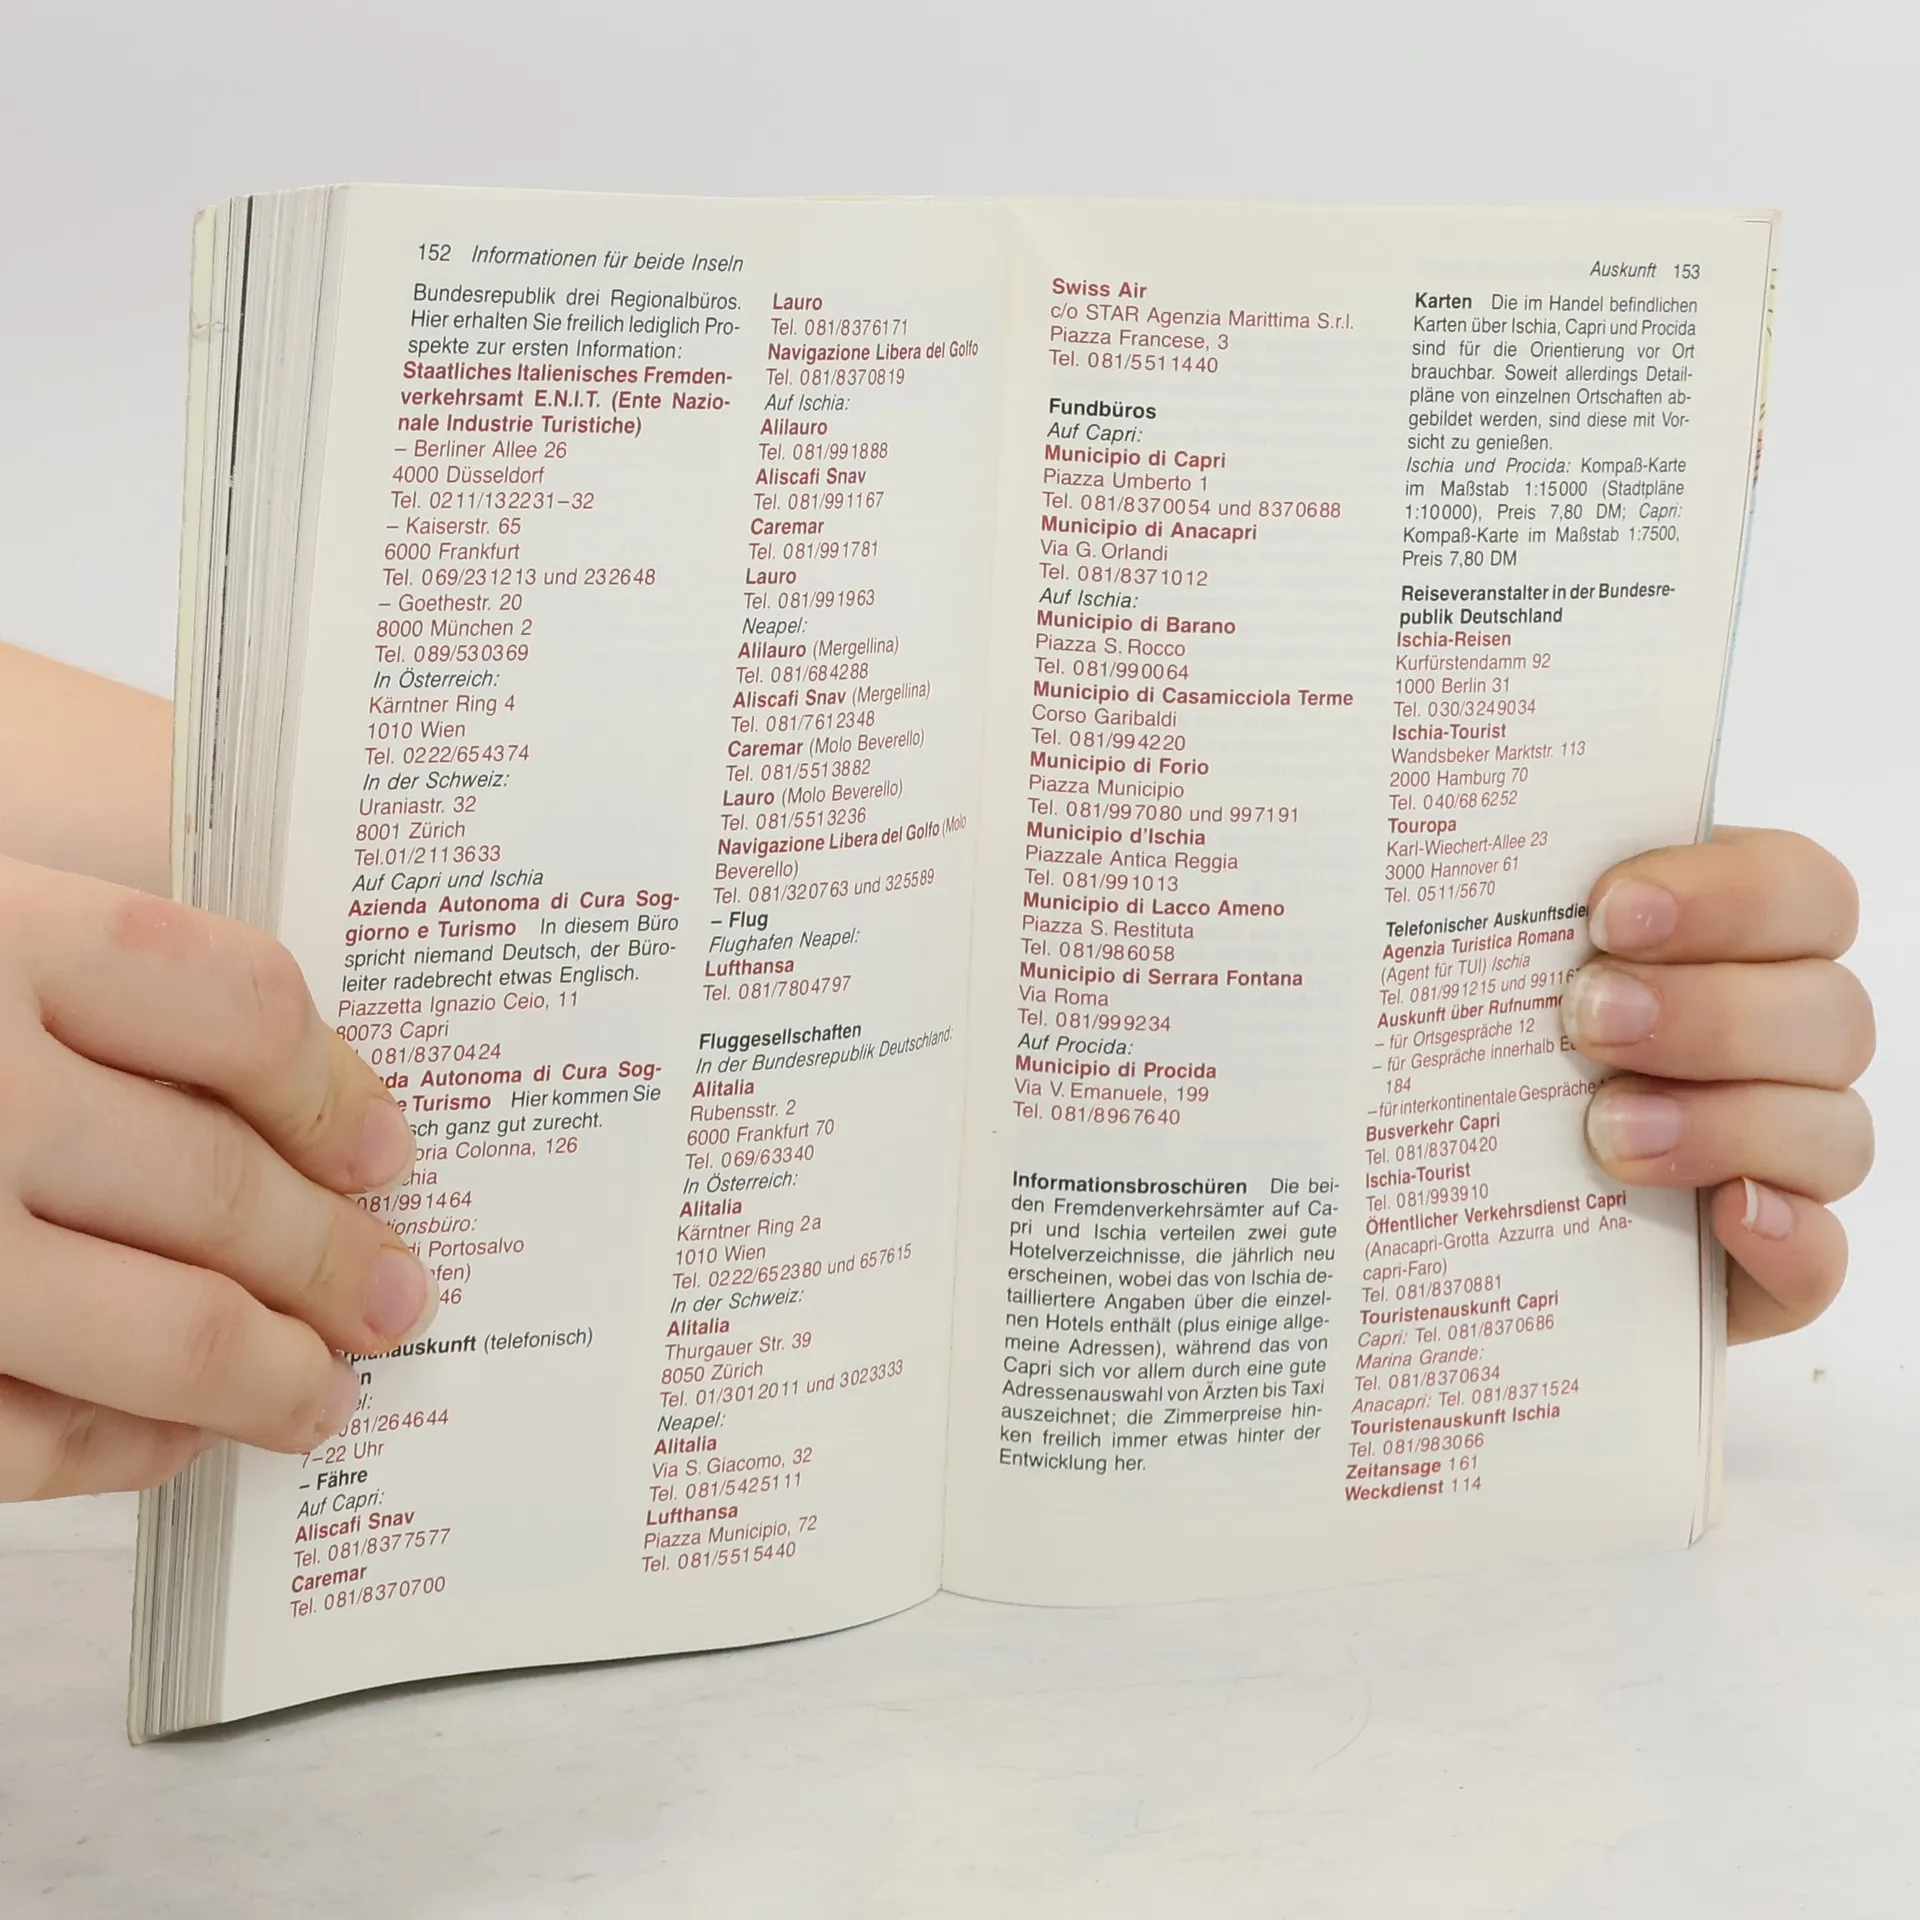 152 Informationen für beide Inseln
Bundesrepublik drei Regionalbüros.
Hier erhalten Sie freilich lediglich Pro-
spekte zur ersten Information:
Staatliches Italienisches Fremden-
verkehrsamt E.N.I.T. (Ente Nazio-
nale Industrie Turistiche)
– Berliner Allee 26
4000 Düsseldorf
Tel. 0211/132231–32
– Kaiserstr. 65
6000 Frankfurt
Tel. 069/231213 und 232648
– Goethestr. 20
8000 München 2
Tel. 089/530369
In Österreich:
Kärntner Ring 4
1010 Wien
Tel. 0222/654374
In der Schweiz:
Uraniastr. 32
8001 Zürich
Tel.01/2113633
Auf Capri und Ischia
Azienda Autonoma di Cura Sog-
giorno e Turismo In diesem Büro
spricht niemand Deutsch, der Büro-
leiter radebrecht etwas Englisch.
Piazzetta Ignazio Ceio, 11
80073 Capri
081/8370424
Autonoma di Cura Sog-
e Turismo Hier kommen Sie
ganz gut zurecht.
Colonna, 126
081/991464
di Portosalvo
46
(telefonisch)
081/264644
7–22 Uhr
– Fähre
Auf Capri:
Aliscafi Snav
Tel. 081/8377577
Caremar
Tel. 081/8370700
Lauro
Tel. 081/8376171
Navigazione Libera del Golfo
Tel. 081/8370819
Auf Ischia:
Alilauro
Tel. 081/991888
Aliscafi Snav
Tel. 081/991167
Caremar
Tel. 081/991781
Lauro
Tel. 081/991963
Neapel:
Alilauro (Mergellina)
Tel. 081/684288
Aliscafi Snav (Mergellina)
Tel. 081/7612348
Caremar (Molo Beverello)
Tel. 081/5513882
Lauro (Molo Beverello)
Tel. 081/5513236
Navigazione Libera del Golfo (Molo
Beverello)
Tel. 081/320763 und 325589
– Flug
Flughafen Neapel:
Lufthansa
Tel. 081/7804797
Fluggesellschaften
In der Bundesrepublik Deutschland:
Alitalia
Rubensstr. 2
6000 Frankfurt 70
Tel. 069/63340
In Österreich:
Alitalia
Kärntner Ring 2a
1010 Wien
Tel. 0222/652380 und 657615
In der Schweiz:
Alitalia
Thurgauer Str. 39
8050 Zürich
Tel. 01/3012011 und 3023333
Neapel:
Alitalia
Via S. Giacomo, 32
Tel. 081/5425111
Lufthansa
Piazza Municipio, 72
Tel. 081/5515440
Auskunft 153
Swiss Air
c/o STAR Agenzia Marittima S.r.l.
Piazza Francese, 3
Tel. 081/5511440
Fundbüros
Auf Capri:
Municipio di Capri
Piazza Umberto 1
Tel. 081/8370054 und 8370688
Municipio di Anacapri
Via G. Orlandi
Tel. 081/8371012
Auf Ischia:
Municipio di Barano
Piazza S. Rocco
Tel. 081/990064
Municipio di Casamicciola Terme
Corso Garibaldi
Tel. 081/994220
Municipio di Forio
Piazza Municipio
Tel. 081/997080 und 997191
Municipio d'Ischia
Piazzale Antica Reggia
Tel. 081/991013
Municipio di Lacco Ameno
Piazza S. Restituta
Tel. 081/986058
Municipio di Serrara Fontana
Via Roma
Tel. 081/999234
Auf Procida:
Municipio di Procida
Via V. Emanuele, 199
Tel. 081/8967640
Informationsbroschüren Die bei-
den Fremdenverkehrsämter auf Ca-
pri und Ischia verteilen zwei gute
Hotelverzeichnisse, die jährlich neu
erscheinen, wobei das von Ischia de-
tailliertere Angaben über die einzel-
nen Hotels enthält (plus einige allge-
meine Adressen), während das von
Capri sich vor allem durch eine gute
Adressenauswahl von Ärzten bis Taxi
auszeichnet; die Zimmerpreise hin-
ken freilich immer etwas hinter der
Entwicklung her.
Karten Die im Handel befindlichen
Karten über Ischia, Capri und Procida
sind für die Orientierung vor Ort
brauchbar. Soweit allerdings Detail-
pläne von einzelnen Ortschaften ab-
gebildet werden, sind diese mit Vor-
sicht zu genießen.
Ischia und Procida: Kompaß-Karte
im Maßstab 1:15000 (Stadtpläne
1:10000), Preis 7,80 DM; Capri:
Kompaß-Karte im Maßstab 1:7500,
Preis 7,80 DM
Reiseveranstalter in der Bundesre-
publik Deutschland
Ischia-Reisen
Kurfürstendamm 92
1000 Berlin 31
Tel. 030/3249034
Ischia-Tourist
Wandsbeker Marktstr. 113
2000 Hamburg 70
Tel. 040/686252
Touropa
Karl-Wiechert-Allee 23
3000 Hannover 61
Tel. 0511/5670
Telefonischer
Agenzia Turistica Romana
(Agent für TUI) Ischia
Tel. 081/991215 und
Auskunft über
– für Ortsgespräche 12
– für Gespräche innerhalb
184
– für interkontinentale Gespräche
Busverkehr Capri
Tel. 081/8370420
Ischia-Tourist
Tel. 081/993910
Öffentlicher Verkehrsdienst Capri
(Anacapri-Grotta Azzurra und Ana-
capri-Faro)
Tel. 081/8370881
Touristenauskunft Capri
Capri: Tel. 081/8370686
Marina Grande:
Tel. 081/8370634
Anacapri: Tel. 081/8371524
Touristenauskunft Ischia
Tel. 081/983066
Zeitansage 161
Weckdienst 114